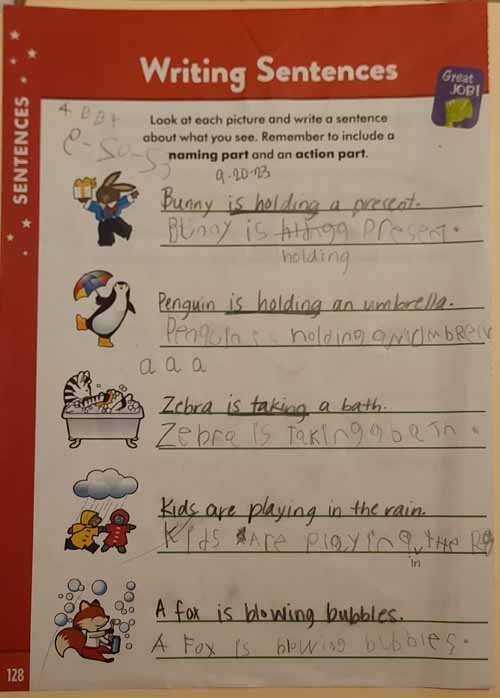 Writing Sentences
Great JOB!
SENTENCES
Look at each picture and write a sentence
about what you see. Remember to include a
naming part and an action part.
9-20-23
Bunny is holding a present.
Bunny is a present.
holding
Penguin is holding an umbrella.
Penguin is holding
a a a
Zebra is taking a bath.
Zebra is taking a
Kids are playing in the rain.
Kids Are playing the
in
A fox is blowing bubbles.
A Fox is blowing bubbles.
128